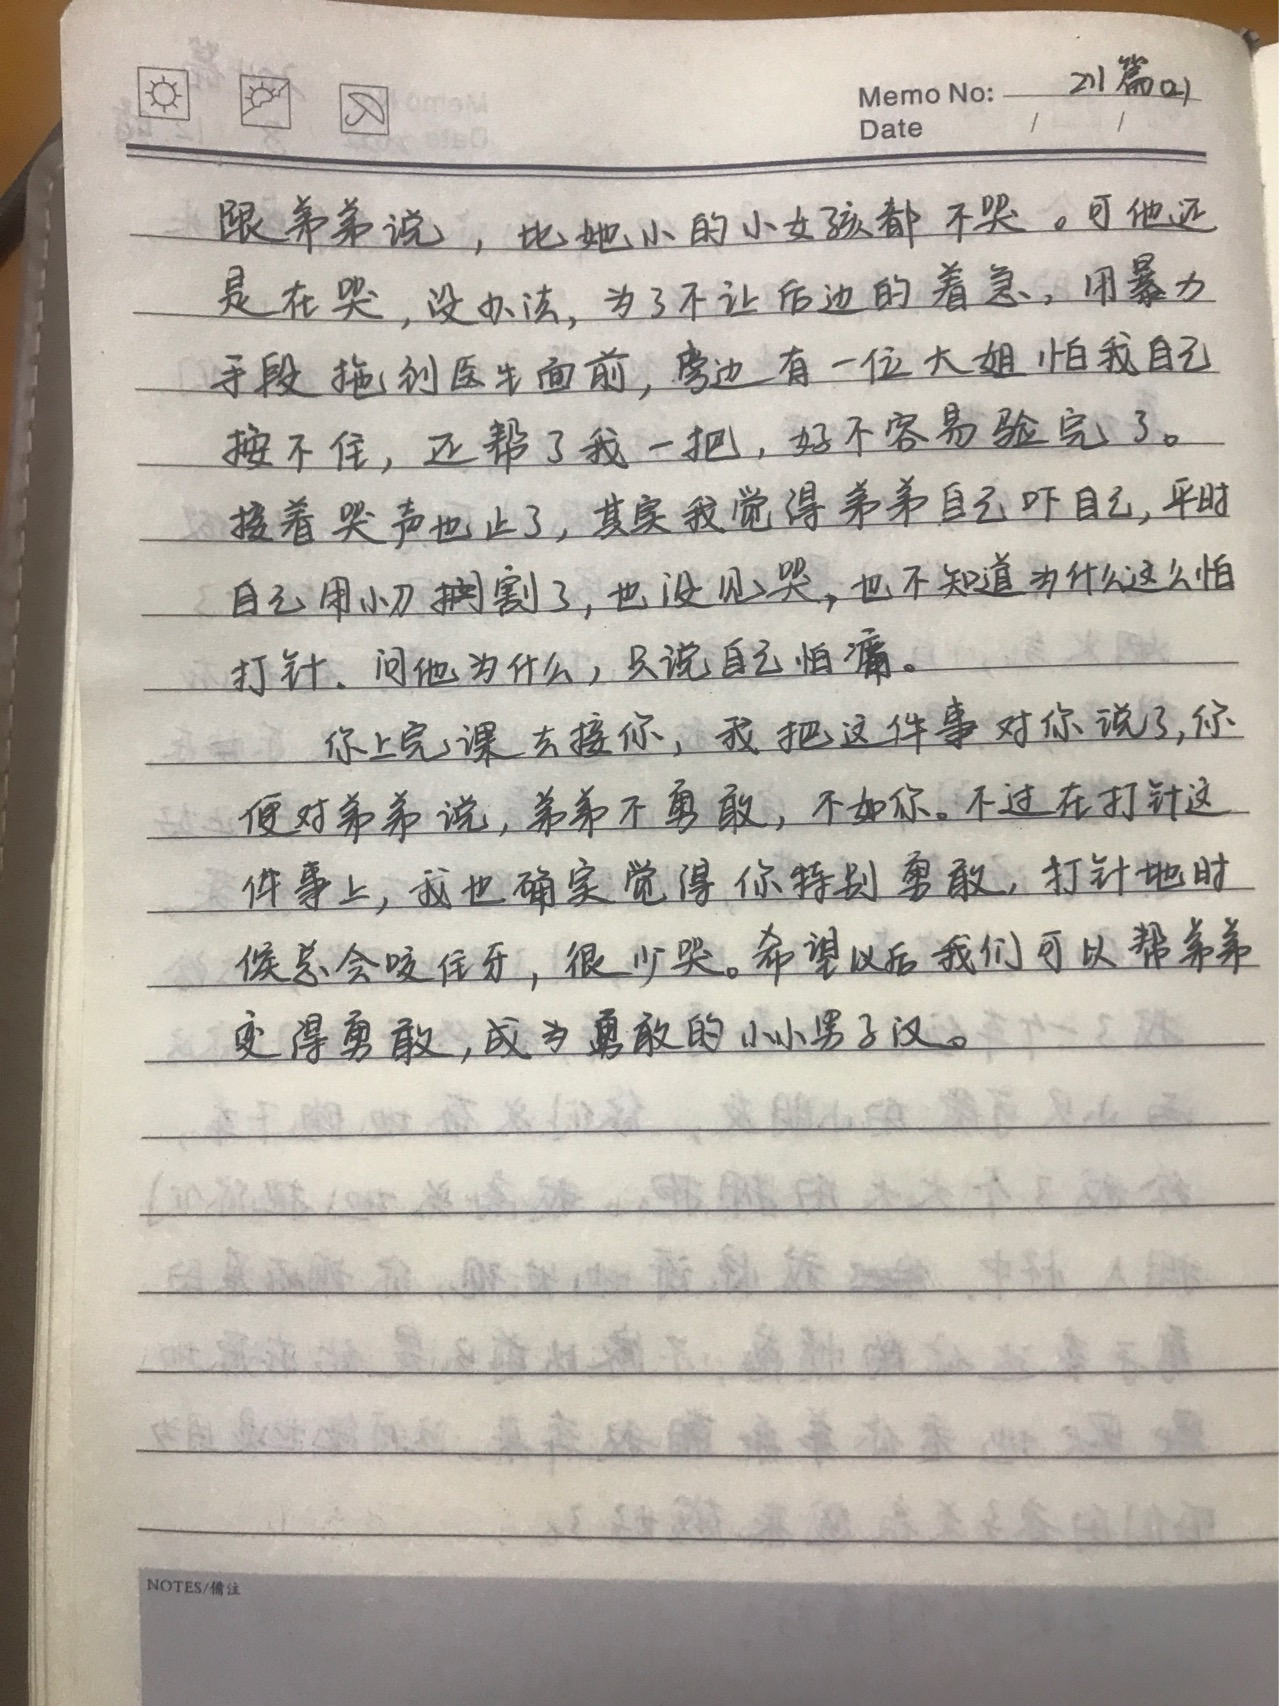 Memo No: 211篇(2)
Date / /
跟弟弟说，比她小的小女孩都不哭。可他还
是在哭，没办法，为了不让后边的着急，用暴力
手段拖到医生面前，旁边有一位大姐怕我自己
按不住，还帮了我一把，好不容易验完了。
接着哭声也止了，其实我觉得弟弟自己吓自己，平时
自己用小刀割了，也没见哭，也不知道为什么这么怕
打针。问他为什么，只说自己怕痛。
你上完课去接你，我把这件事对你说了，你
便对弟弟说，弟弟不勇敢，不如你。不过在打针这
件事上，我也确实觉得你特别勇敢，打针地时
候总会咬住牙，很少哭。希望以后我们可以帮弟弟
变得勇敢，成为勇敢的小小男子汉。
NOTES/備注